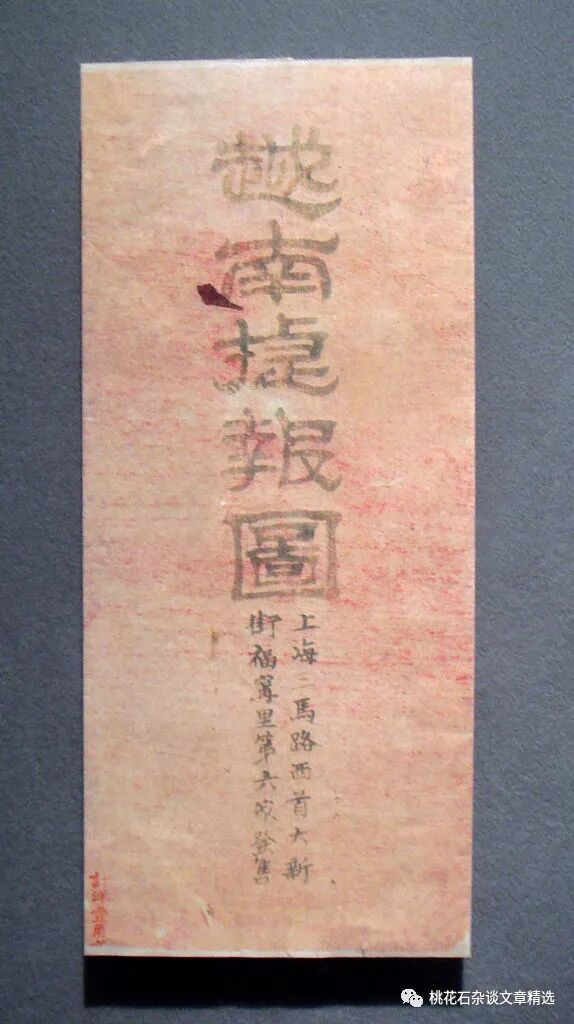 越南捷報圖
上海二馬路西首大新
街福寗里第六家發售
計洋壹角
桃花石杂谈文章精选